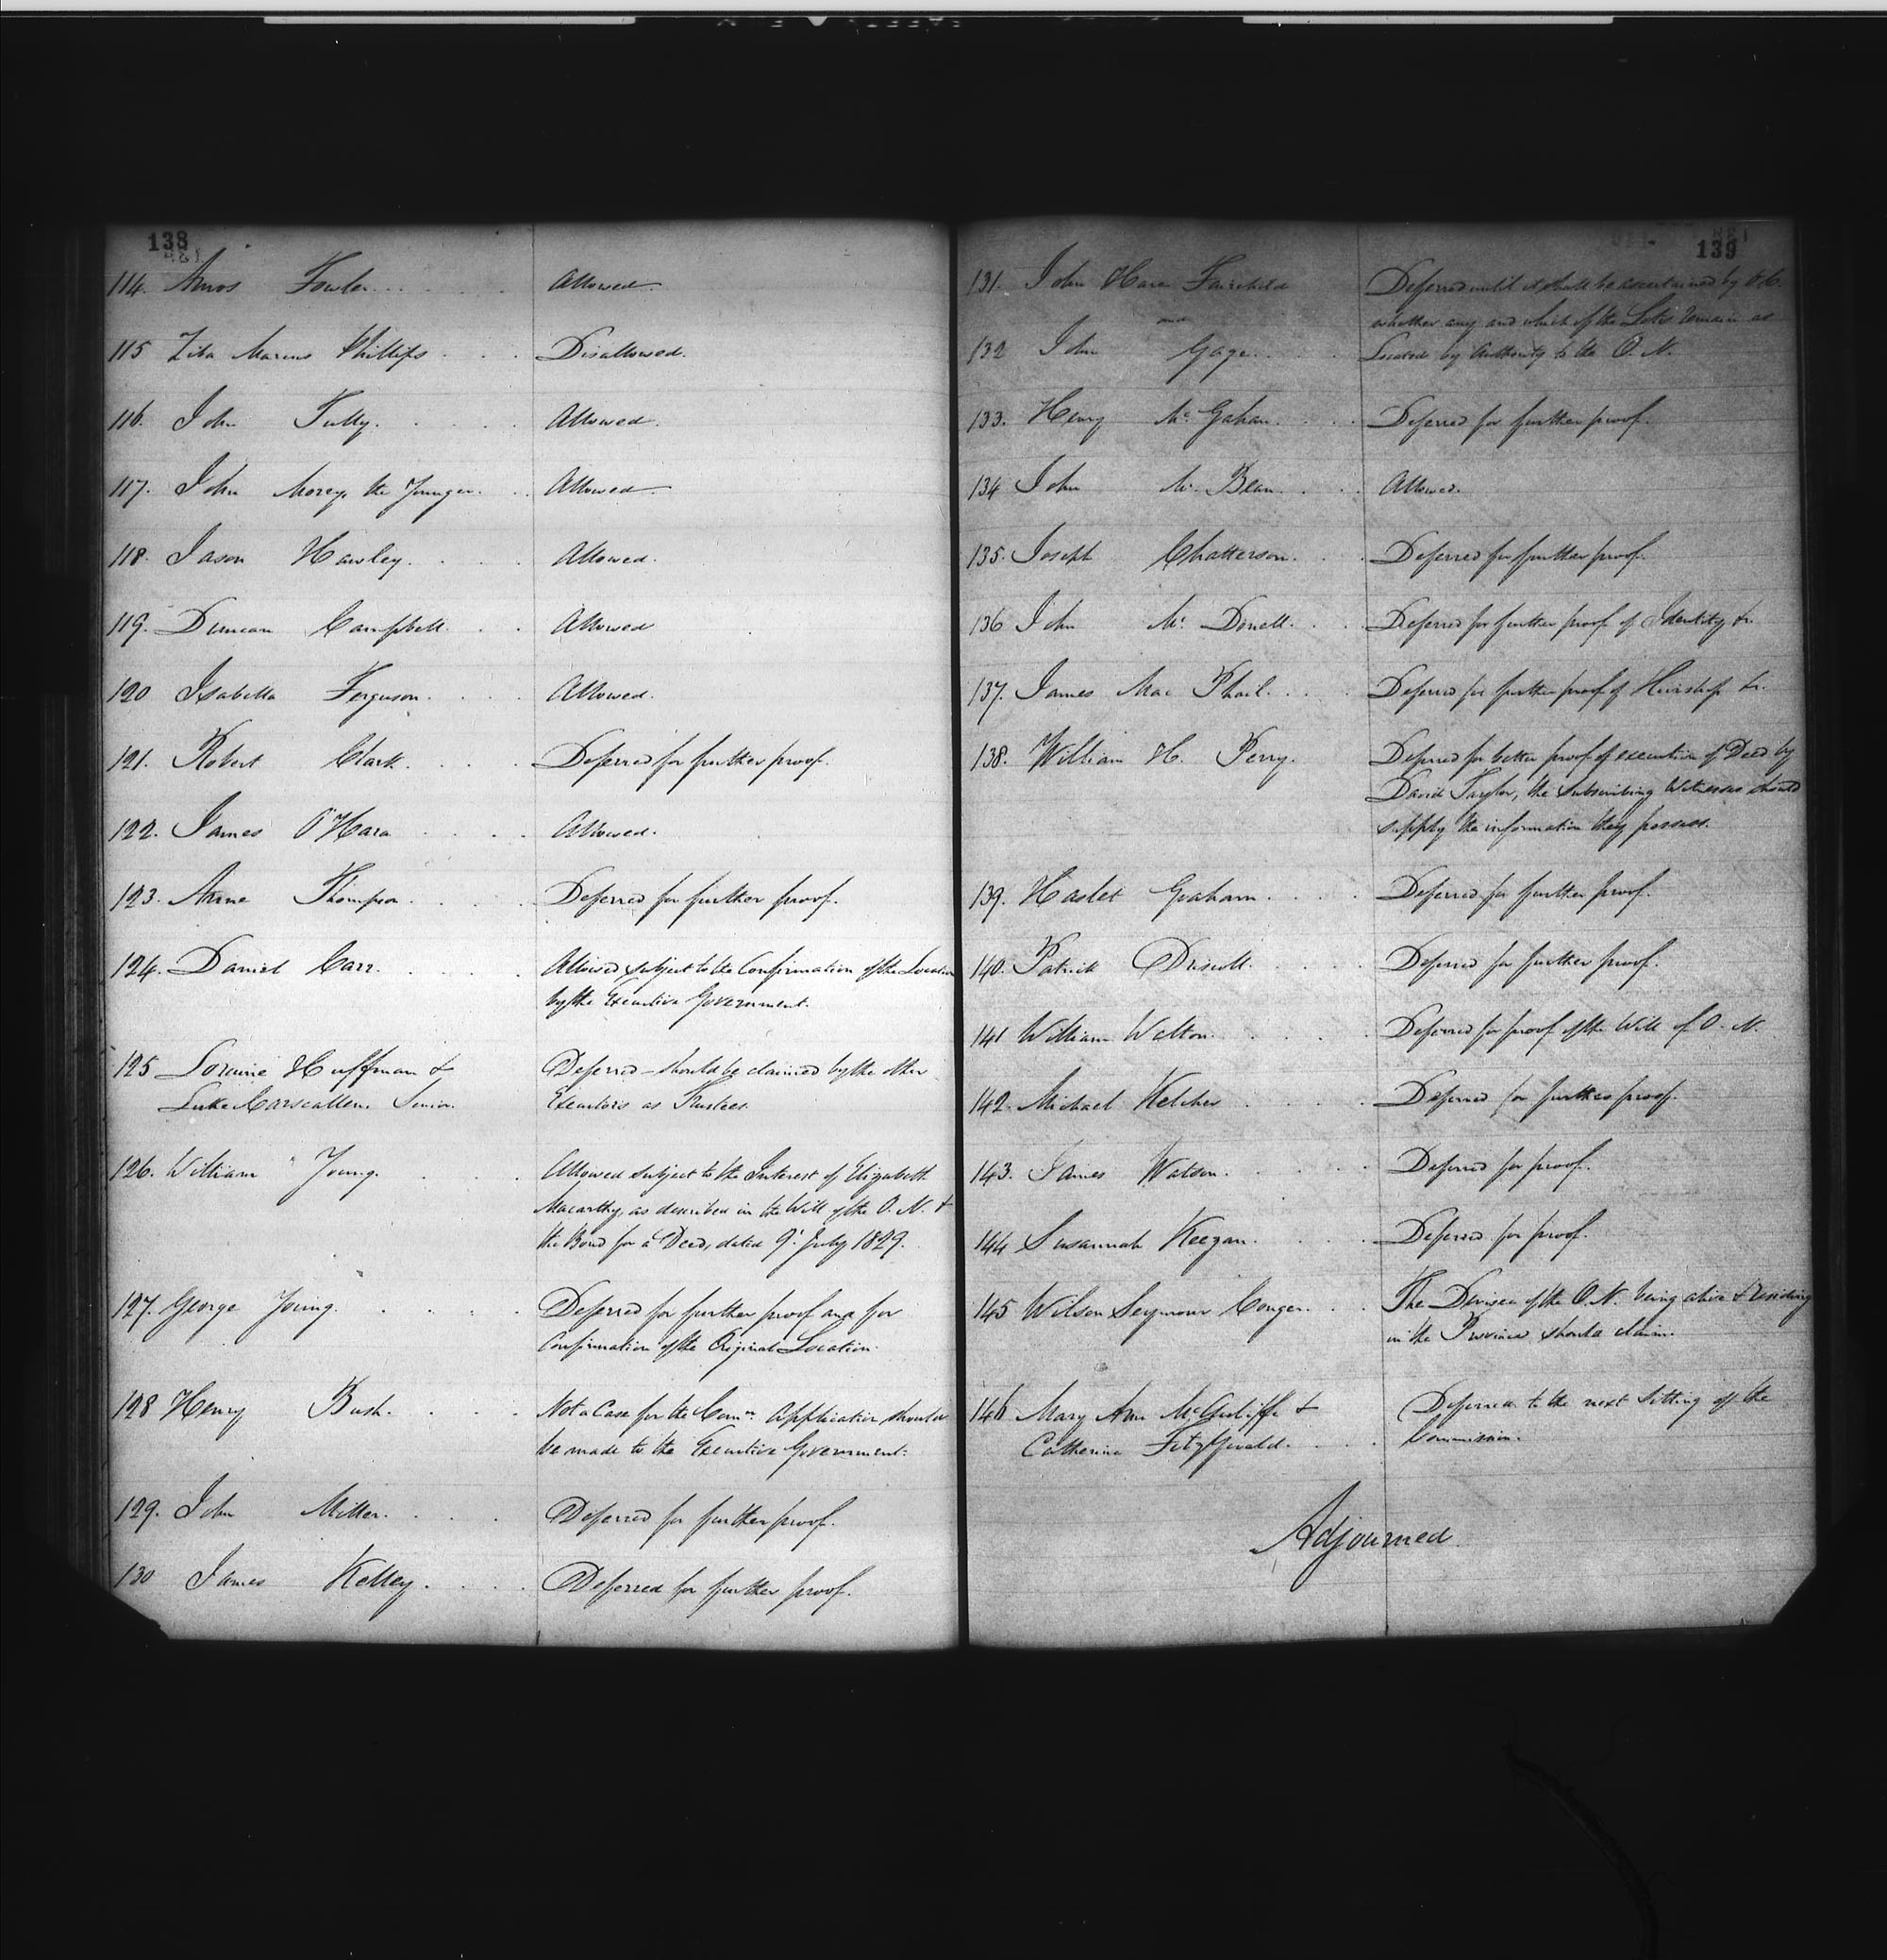 138
114. Amos Fowler. Allowed.
115 Ziba Marcus Phillips Disallowed.
116. John Tully. Allowed.
117. John Morey, the Younger. Allowed
118. Jason Hawley. Allowed.
119. Duncan Campbell. Allowed
120 Isabella Ferguson. Allowed.
121. Robert Clark. Deferred for further proof.
122. James O'Hara Allowed.
123. Anne Thompson. Deferred for further proof.
124. Daniel Carr. Allowed subject to the Confirmation of the Location
by the Executive Government.
125 Huffman & Deferred – should be claimed by the other
Luke Carscallen. Senior. Executors as Trustees.
126. William Young. Allowed subject to the Interest of Elizabeth
Macarthy, as described in the Will of the O. N. &
the Bond for a Deed, dated 9th July 1829.
127. George Young. Deferred for further proof and for
Confirmation of the Original Location.
128 Henry Bush. Not a Case for the Comn. Application should
be made to the Executive Government.
129. John Miller. Deferred for further proof.
130 James Kelley. Deferred for further proof.
139
131. John Hare Fairchild Deferred until it shall be ascertained by
and whether any and which of the Lots remain as
132 John Gage. Located by Authority to the O. N.
133. Henry McGahan. Deferred for further proof.
134 John McBean. Allowed.
135. Joseph Chatterson. Deferred for further proof.
136 John McDonell. Deferred for further proof of Identity &c.
137. James Mac Phail. Deferred for further proof of Heirship &c.
138. William H. Perry. Deferred for better proof of execution of Deed by
David Taylor, the Subscribing Witnesses should
supply the information they possess.
139. Haslet Graham. Deferred for further proof.
140. Patrick Driscoll. Deferred for further proof.
141 William Welton. Deferred for proof of the Will of O. N.
142. Michael Kelcher Deferred for further proof.
143. James Watson. Deferred for proof.
144 Susannah Keegan. Deferred for proof.
145 Wilson Seymour Conger. The Devisee of the O. N. being alive & residing
in the Province should claim.
146 Mary Ann McAuliffe & Deferred to the next Sitting of the
Catherine FitzGerald. Commission.
Adjourned